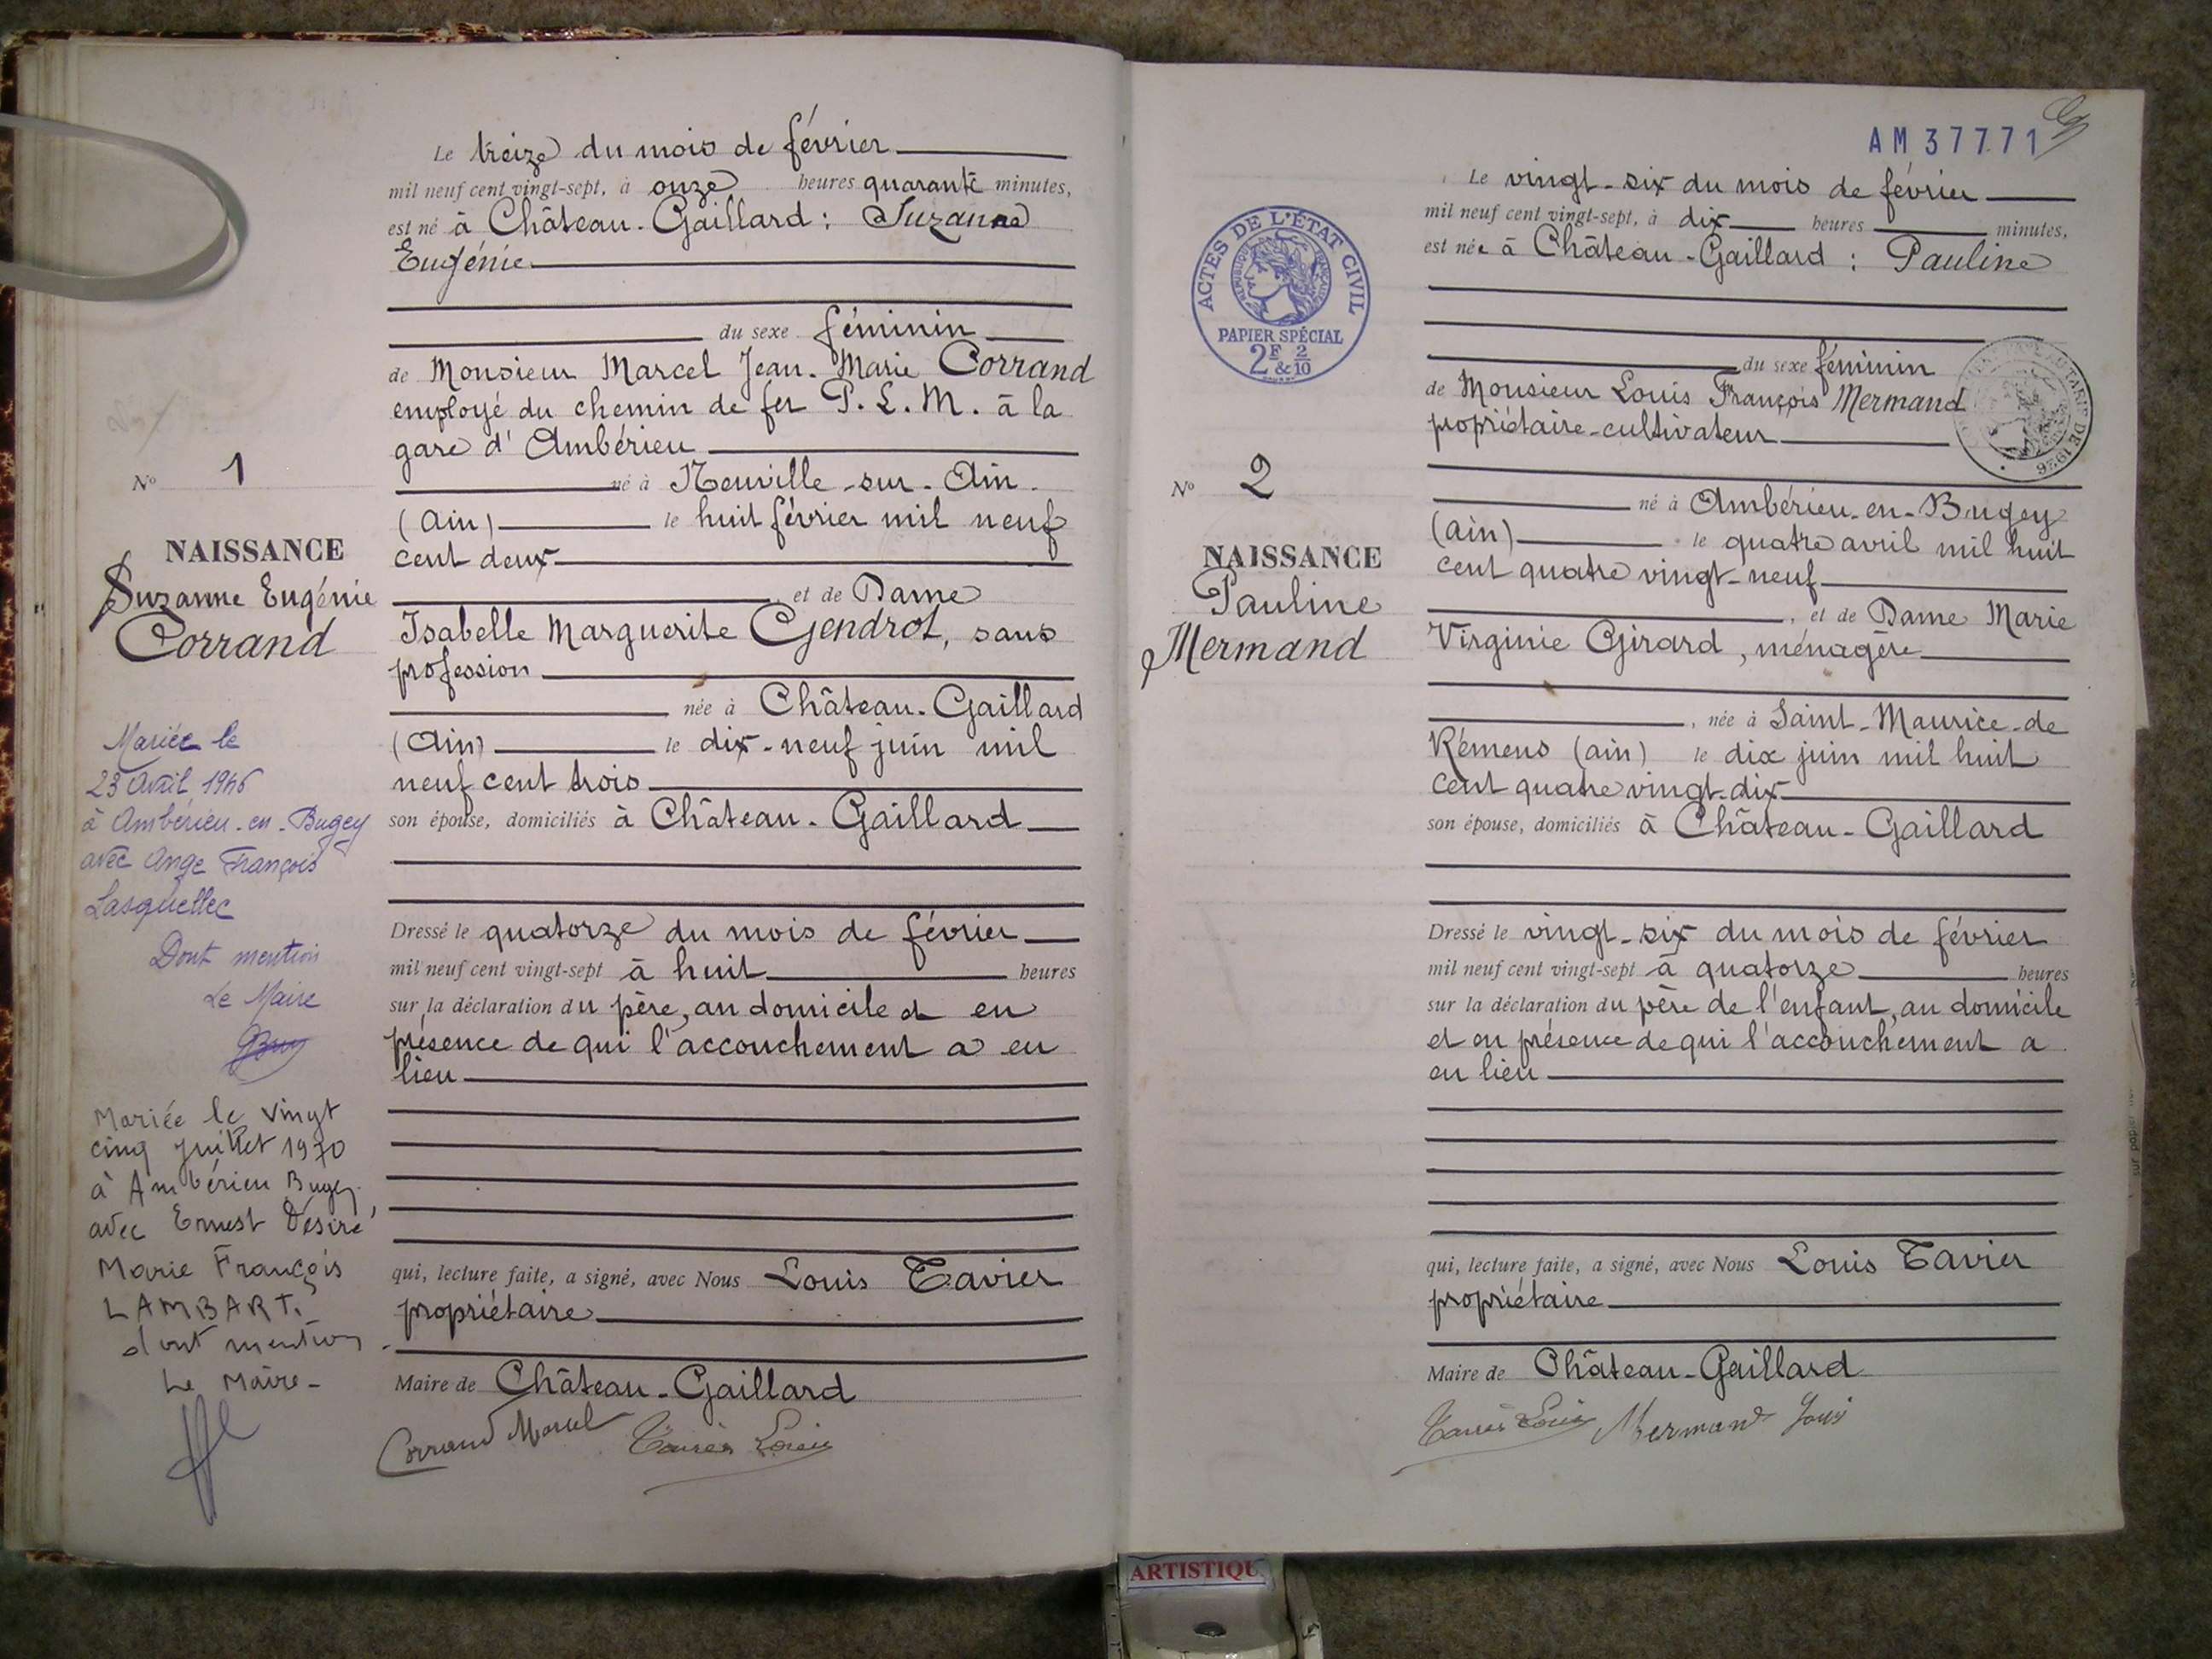 Le treize du mois de février
mil neuf cent vingt-sept, à onze heures quarante minutes,
est né à Château-Gaillard : Suzanne
Eugénie
du sexe féminin
de Monsieur Marcel Jean-Marie Corrand
employé du chemin de fer P.L.M. à la
gare d'Ambérieu
né à Neuville-sur-Ain
(Ain) le huit février mil neuf
cent deux
et de Dame
Isabelle Marguerite Gendrot, sans
profession
née à Château-Gaillard
(Ain) le dix-neuf juin mil
neuf cent trois
son épouse, domiciliés à Château-Gaillard
Dressé le quatorze du mois de février
mil neuf cent vingt-sept à huit heures
sur la déclaration du père, au domicile et en
présence de qui l'accouchement a eu
lieu
qui, lecture faite, a signé, avec Nous Louis Tavier
propriétaire
Maire de Château-Gaillard
Corrand Marcel Tavier Louis
No 1
NAISSANCE
Suzanne Eugénie
Corrand
Mariée le
23 Avril 1946
à Ambérieu-en-Bugey
avec Ange François
Lasquellec
Dont mention
Le Maire
Mariée le vingt
cinq Juillet 1970
à Ambérieu Bugey
avec Ernest Désiré
Marie François
LAMBART.
dont mention
Le Maire-
AM37771
Le vingt-six du mois de février
mil neuf cent vingt-sept, à dix heures minutes,
est née à Château-Gaillard : Pauline
du sexe féminin
de Monsieur Louis François Mermand
propriétaire-cultivateur
né à Ambérieu-en-Bugey
(Ain) le quatre avril mil huit
cent quatre vingt-neuf
, et de Dame Marie
Virginie Girard, ménagère
, née à Saint-Maurice-de
Rémens (Ain) le dix juin mil huit
cent quatre vingt-dix
son épouse, domiciliés à Château-Gaillard
Dressé le vingt-six du mois de février
mil neuf cent vingt-sept à quatorze heures
sur la déclaration du père de l'enfant, au domicile
et en présence de qui l'accouchement a
eu lieu
qui, lecture faite, a signé, avec Nous Louis Tavier
propriétaire
Maire de Château-Gaillard
Tavier Louis Mermand Louis
ACTES DE L'ÉTAT CIVIL
RÉPUBLIQUE FRANÇAISE
PAPIER SPÉCIAL
2F & 2/10
DE 1926
No 2
NAISSANCE
Pauline
Mermand
ARTISTIQU